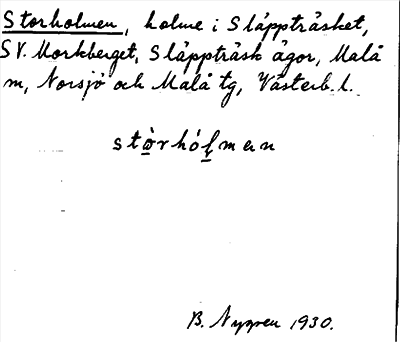 Storholmen, holme i Släppträsket,
SV. Morkberget, Släppträsk ägor, Malå
m, Norsjö och Malå tg, Västerb. l.
stòrhólmen
B. Nygren 1930.